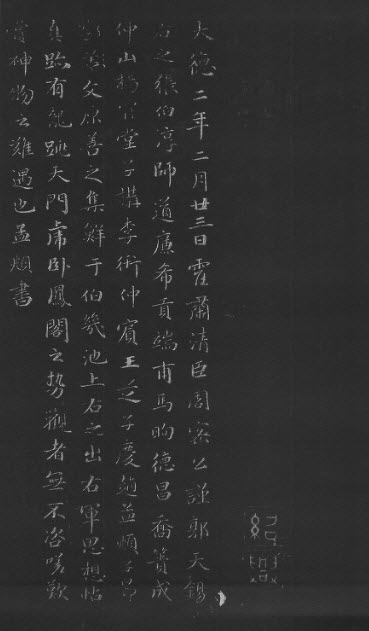 大德二年二月廿三日霍肅清臣周密公謹郭天錫
右之張伯淳師道廉希貢端甫馬昫德昌喬簣成
仲山楊肯堂子構李衎仲賓王芝子慶趙孟頫子昂
鄧文原善之集鮮于伯幾池上右之出右軍思想帖
真跡有龍跳天門虎卧鳳閣之勢觀者無不咨嗟歎
賞神物之難遇也孟頫書